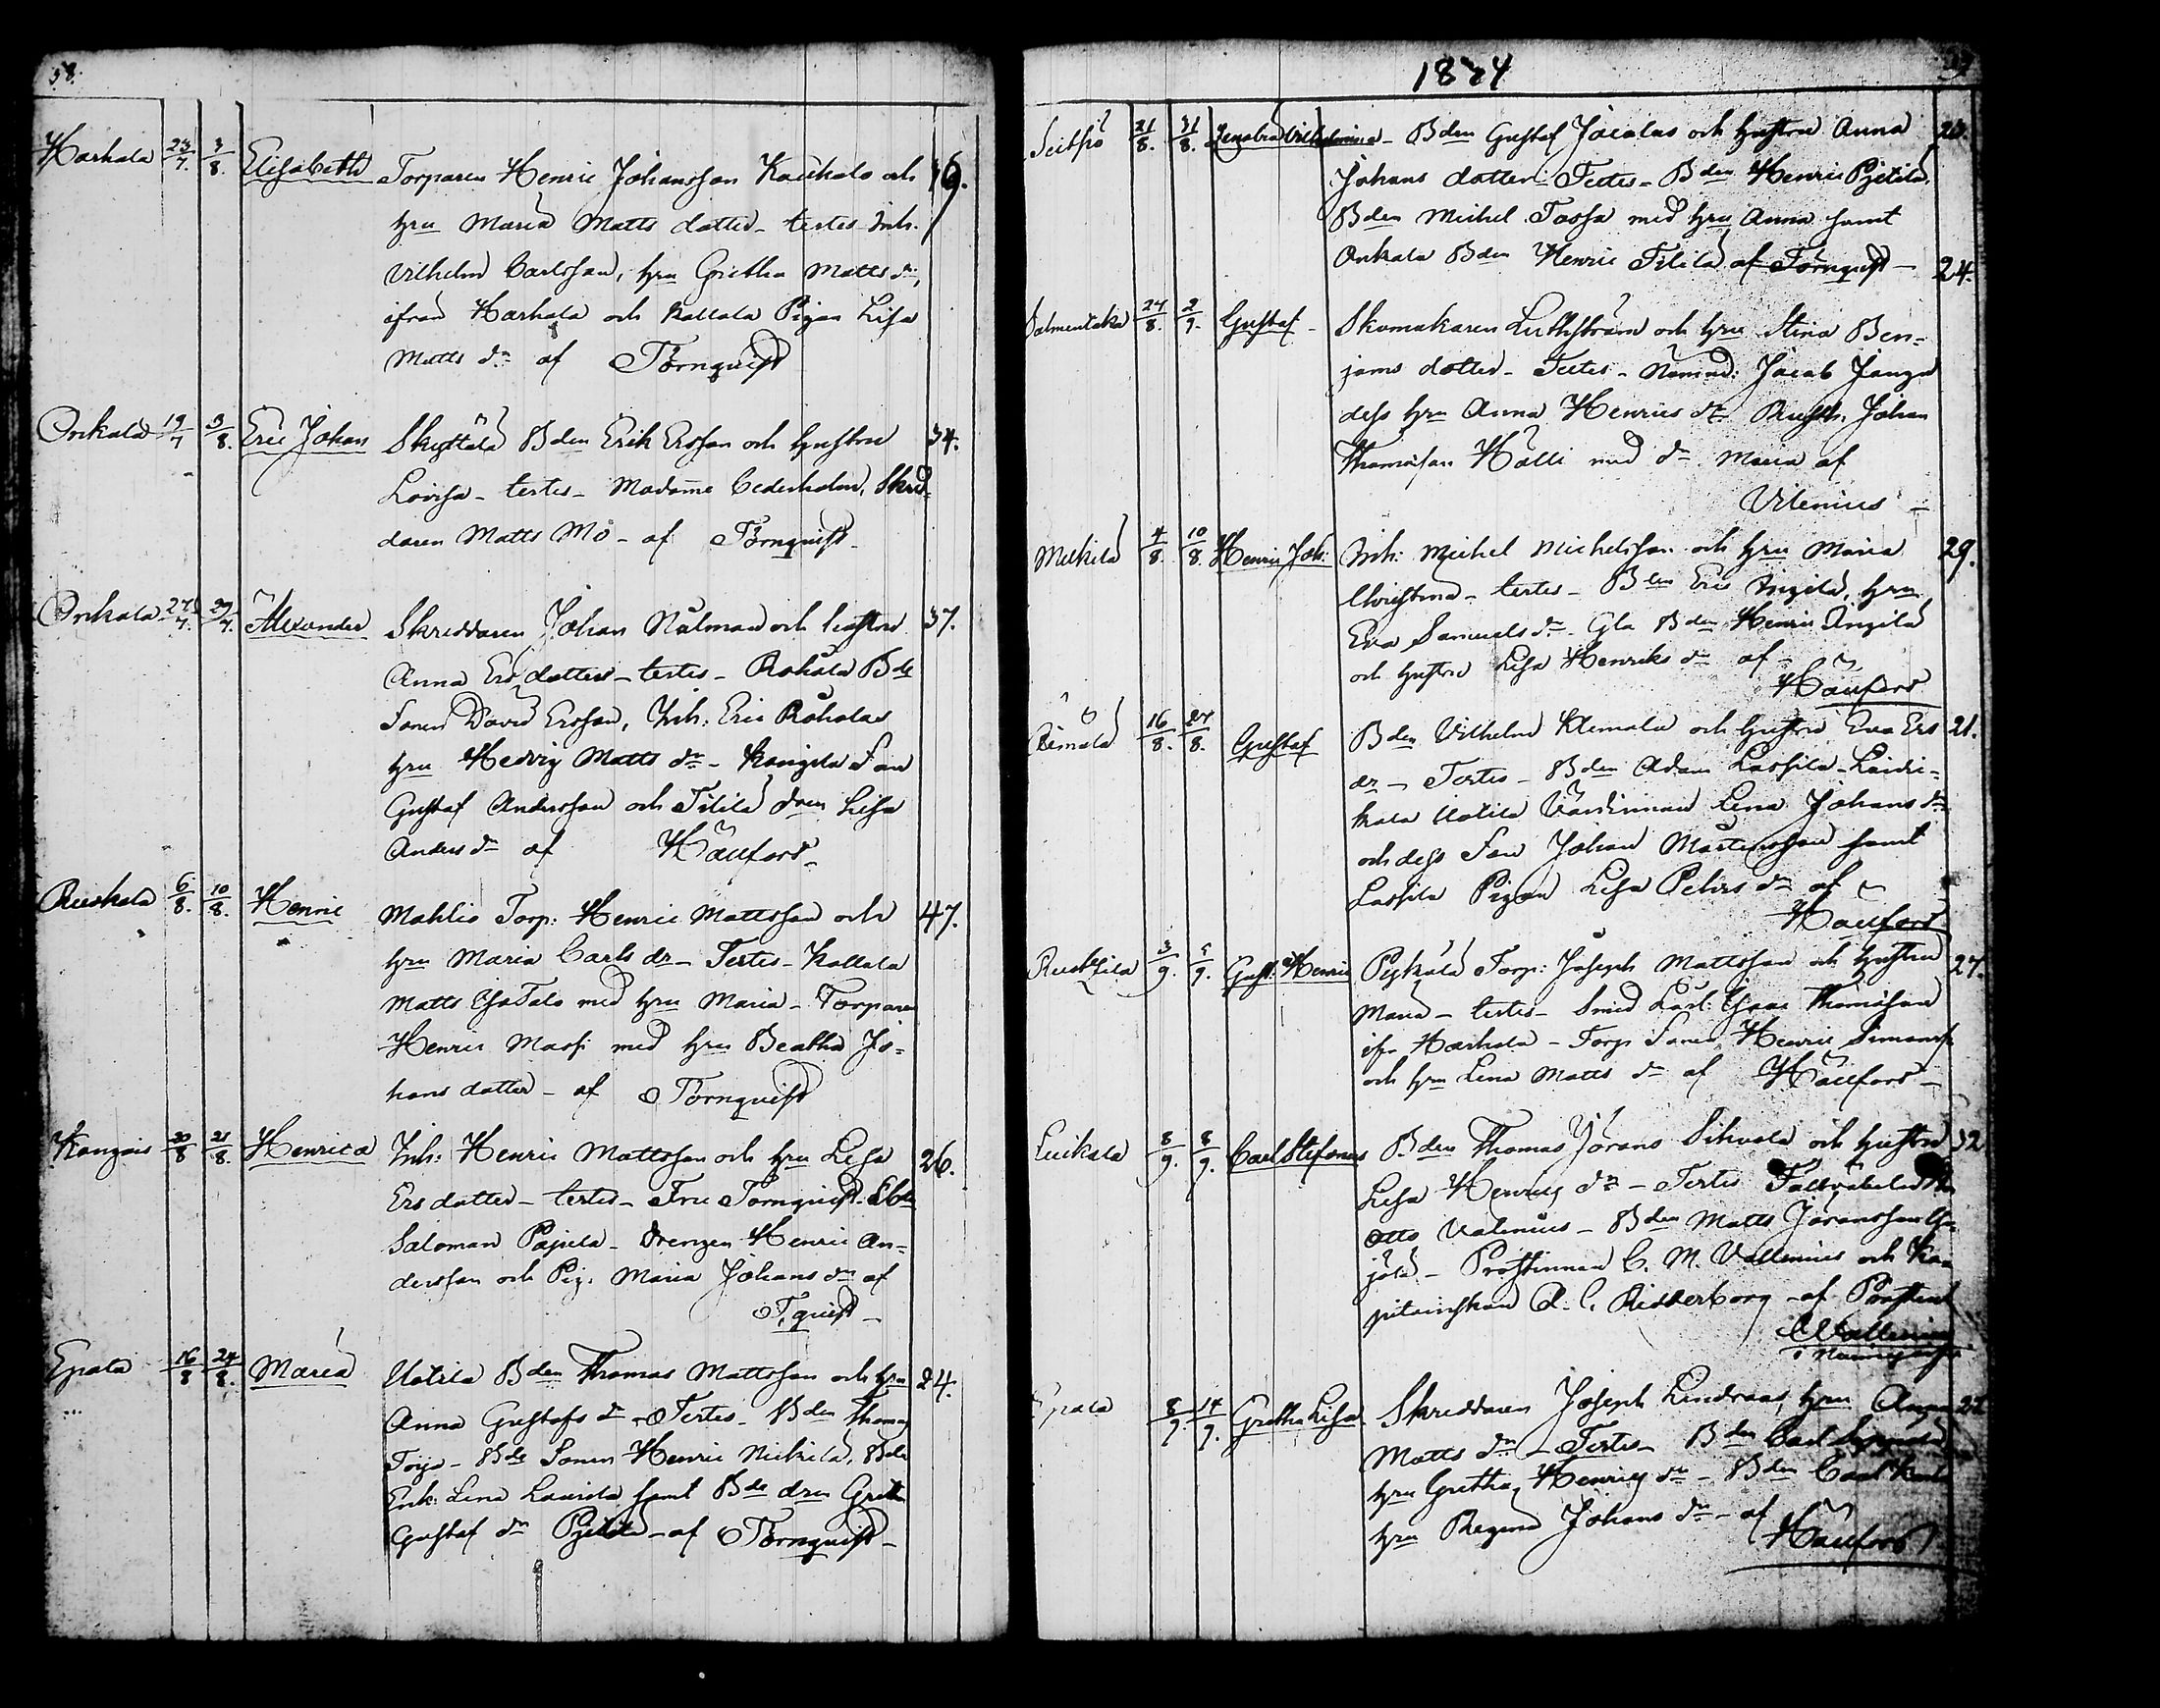 38.
Harhala 23/7. 3/8. Elisabeth Torparen Henric Johansson Kaukalo och 16.
hru Maria Matts dotter - testes Inh.
Vilhelm Carlsson, hru Gretha Matts dr,
ifrån Harhala och Kallala Pigan Lisa
Matts dr af Törnquist
Onkala 19/7 3/8. Eric Johan Skyttälä Bden Erik Ersson och hustru 34.
Lovisa - testes - Madame Cederholm, Skred-
daren Matts Mo - af Törnquist
Onkala 27/7. 29/7. Alexander Skreddaren Johan Nalman och hustru 37.
Anna Ers dotter - testes - Rohala Bde
Sonen David Ersson, Inh: Eric Roholas
hru Hedvig Matts dr - Kangila Son
Gustaf Andersson och Tilila dren Lisa
Anders dr af Häufors
Ruokala 6/8. 10/8. Henric Mahlio Torp: Henric Mattsson och 47.
hru Maria Carls dr - Testes - Kallala
Matts YsaTalo med hru Maria - Torparen
Henric Massi med hru Beatha Jo-
hans dotter - af Törnquist
Kangais 20/8 21/8. Henrica Inh: Henric Mattsson och hru Lisa 26.
Ers dotter - testes - Fru Törnquist
Saloman Pajula - Drengen Henric An-
dersson och Pig. Maria Johans dr af
T.quist
Epala 16/8 24/8. Maria Uotila Bden Thomas Mattsson och hru 24.
Anna Gustafs dr - Testes - Bden Thomas
Toijo - Bde Sonen Henric Nickila, Bde
Enk: Lena Laurila samt Bde dren Greta
Gustaf dr Pjetilä - af Törnquist
1824
21/8. 31/8. Bden Gustaf Jacolas och hustru Anna
Johans dotter - Testes - Bden Henric Pjetilä,
Bden Michel Tassa med hru Anna samt
Onkala Bden Henric Tilila af Törnquist 24.
Salmentaka 24/8. 2/9. Gustaf Skomakaren Luthström och hru Stina Ben-
jams dotter - Testes - Nämnd: Jacob
dess hru Anna Henrics dr Johan
Thomasson Hälli med dr Maria af
Vilenius
Mälkilä 4/8. 10/8. Henric Joh: Inh: Michel Michelsson och hru Maria 29.
Christina - testes - Bden Eric Anzila, hru
Eva Samuels dr - Gla Bden Henric Anzila
och hustru Lisa Henriks dr af
Häufors
16/8. 24/8. Gustaf Bden Vilhelm Klemola och hustru Eva Ers 21.
dr - Testes - Bden Adam Lassila - Laidi-
kala Uotila Värdinnan Lena Johans dr
och dess Son Johan Mårtensson samt
Lassila Pigan Lisa Pehrs dr af
Häufors
3/9. 5/9. Gust: Henric Torp: Joseph Mattsson och hustru 27.
Maria - testes - Smed Isaac Thomasson
ifr. Harhala - Torp. Sonen Henric Simonss.
och hru Lena Matts dr af Häufors
8/9. 8/9. Carl Stefanus Bden Thomas Jörans Sihvola och hustru 32
Lisa Henrics dr - Testes
Otto Valenius - Bden Matts Joransson
- Prostinnan C. M. Vallenius och Ka-
pitainskan Ridderborg - af Prosten
Wallenius
Epala 8/9. 14/9. Gretha Lisa Skreddaren Joseph Lindroos, hru Anna 22.
Matts dr - Testes - Bden Carl
hru Gretha Henrics dr - Bden Carl
hru Regina Johans dr - af
Häufors